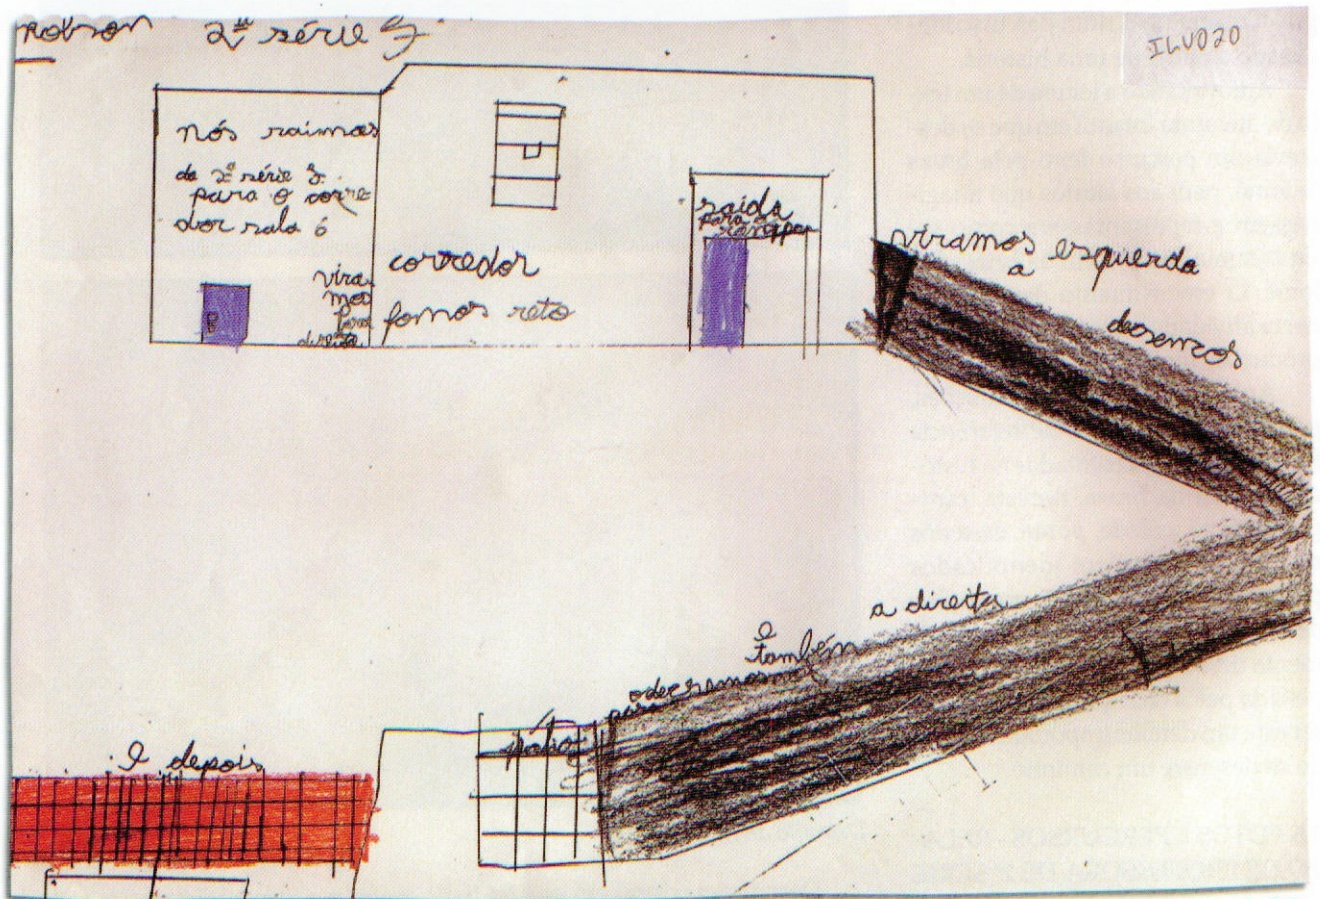 robson 2ª série
ILU020
nós saimos
da 2ª série
para o corre
dor sala ó
vira
mos
para
direita
corredor
fomos reto
saída
para a
rampa
viramos esquerda
a
desemos
a direita
e
também
para
e depois